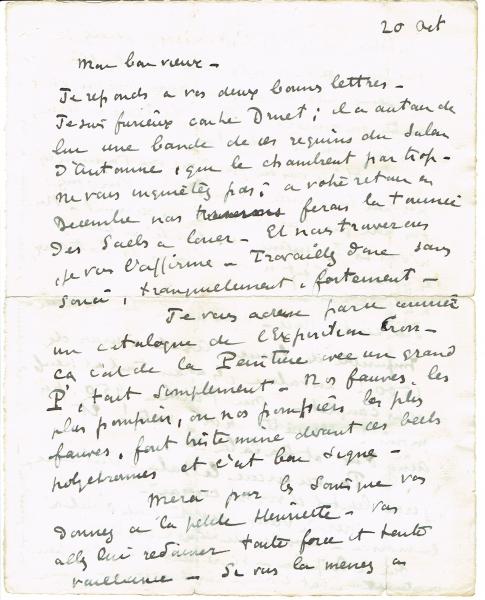 20 Oct
Mon bon vieux -
Je réponds a vos deux bonnes lettres -
Je suis furieux contre Druet ; il a autour de
lui une bande de ces requins du Salon
d'Automne, que le chambrent par trop -
ne vous inquiétez pas ; a votre retour en
Decembre nous ferons la tournée
des Salles a louer - Et nous trouverons
je vous l'affirme - Travaillez donc sans
souci, tranquillement, fortement -
Je vous adresse par ce courrier
un catalogue de l'Exposition Cross -
ça c'est de la Peinture avec un grand
P, tout simplement - Nos fauves, les
plus pompiers, ou nos pompiers les plus
fauves, font triste mine devant ces belles
polychromies et c'est bon signe -
Merci pour les soins que vous
donnez a la petite Henriette - vous
allez lui redonner toute force et toute
vaillance - Si vous la menez a